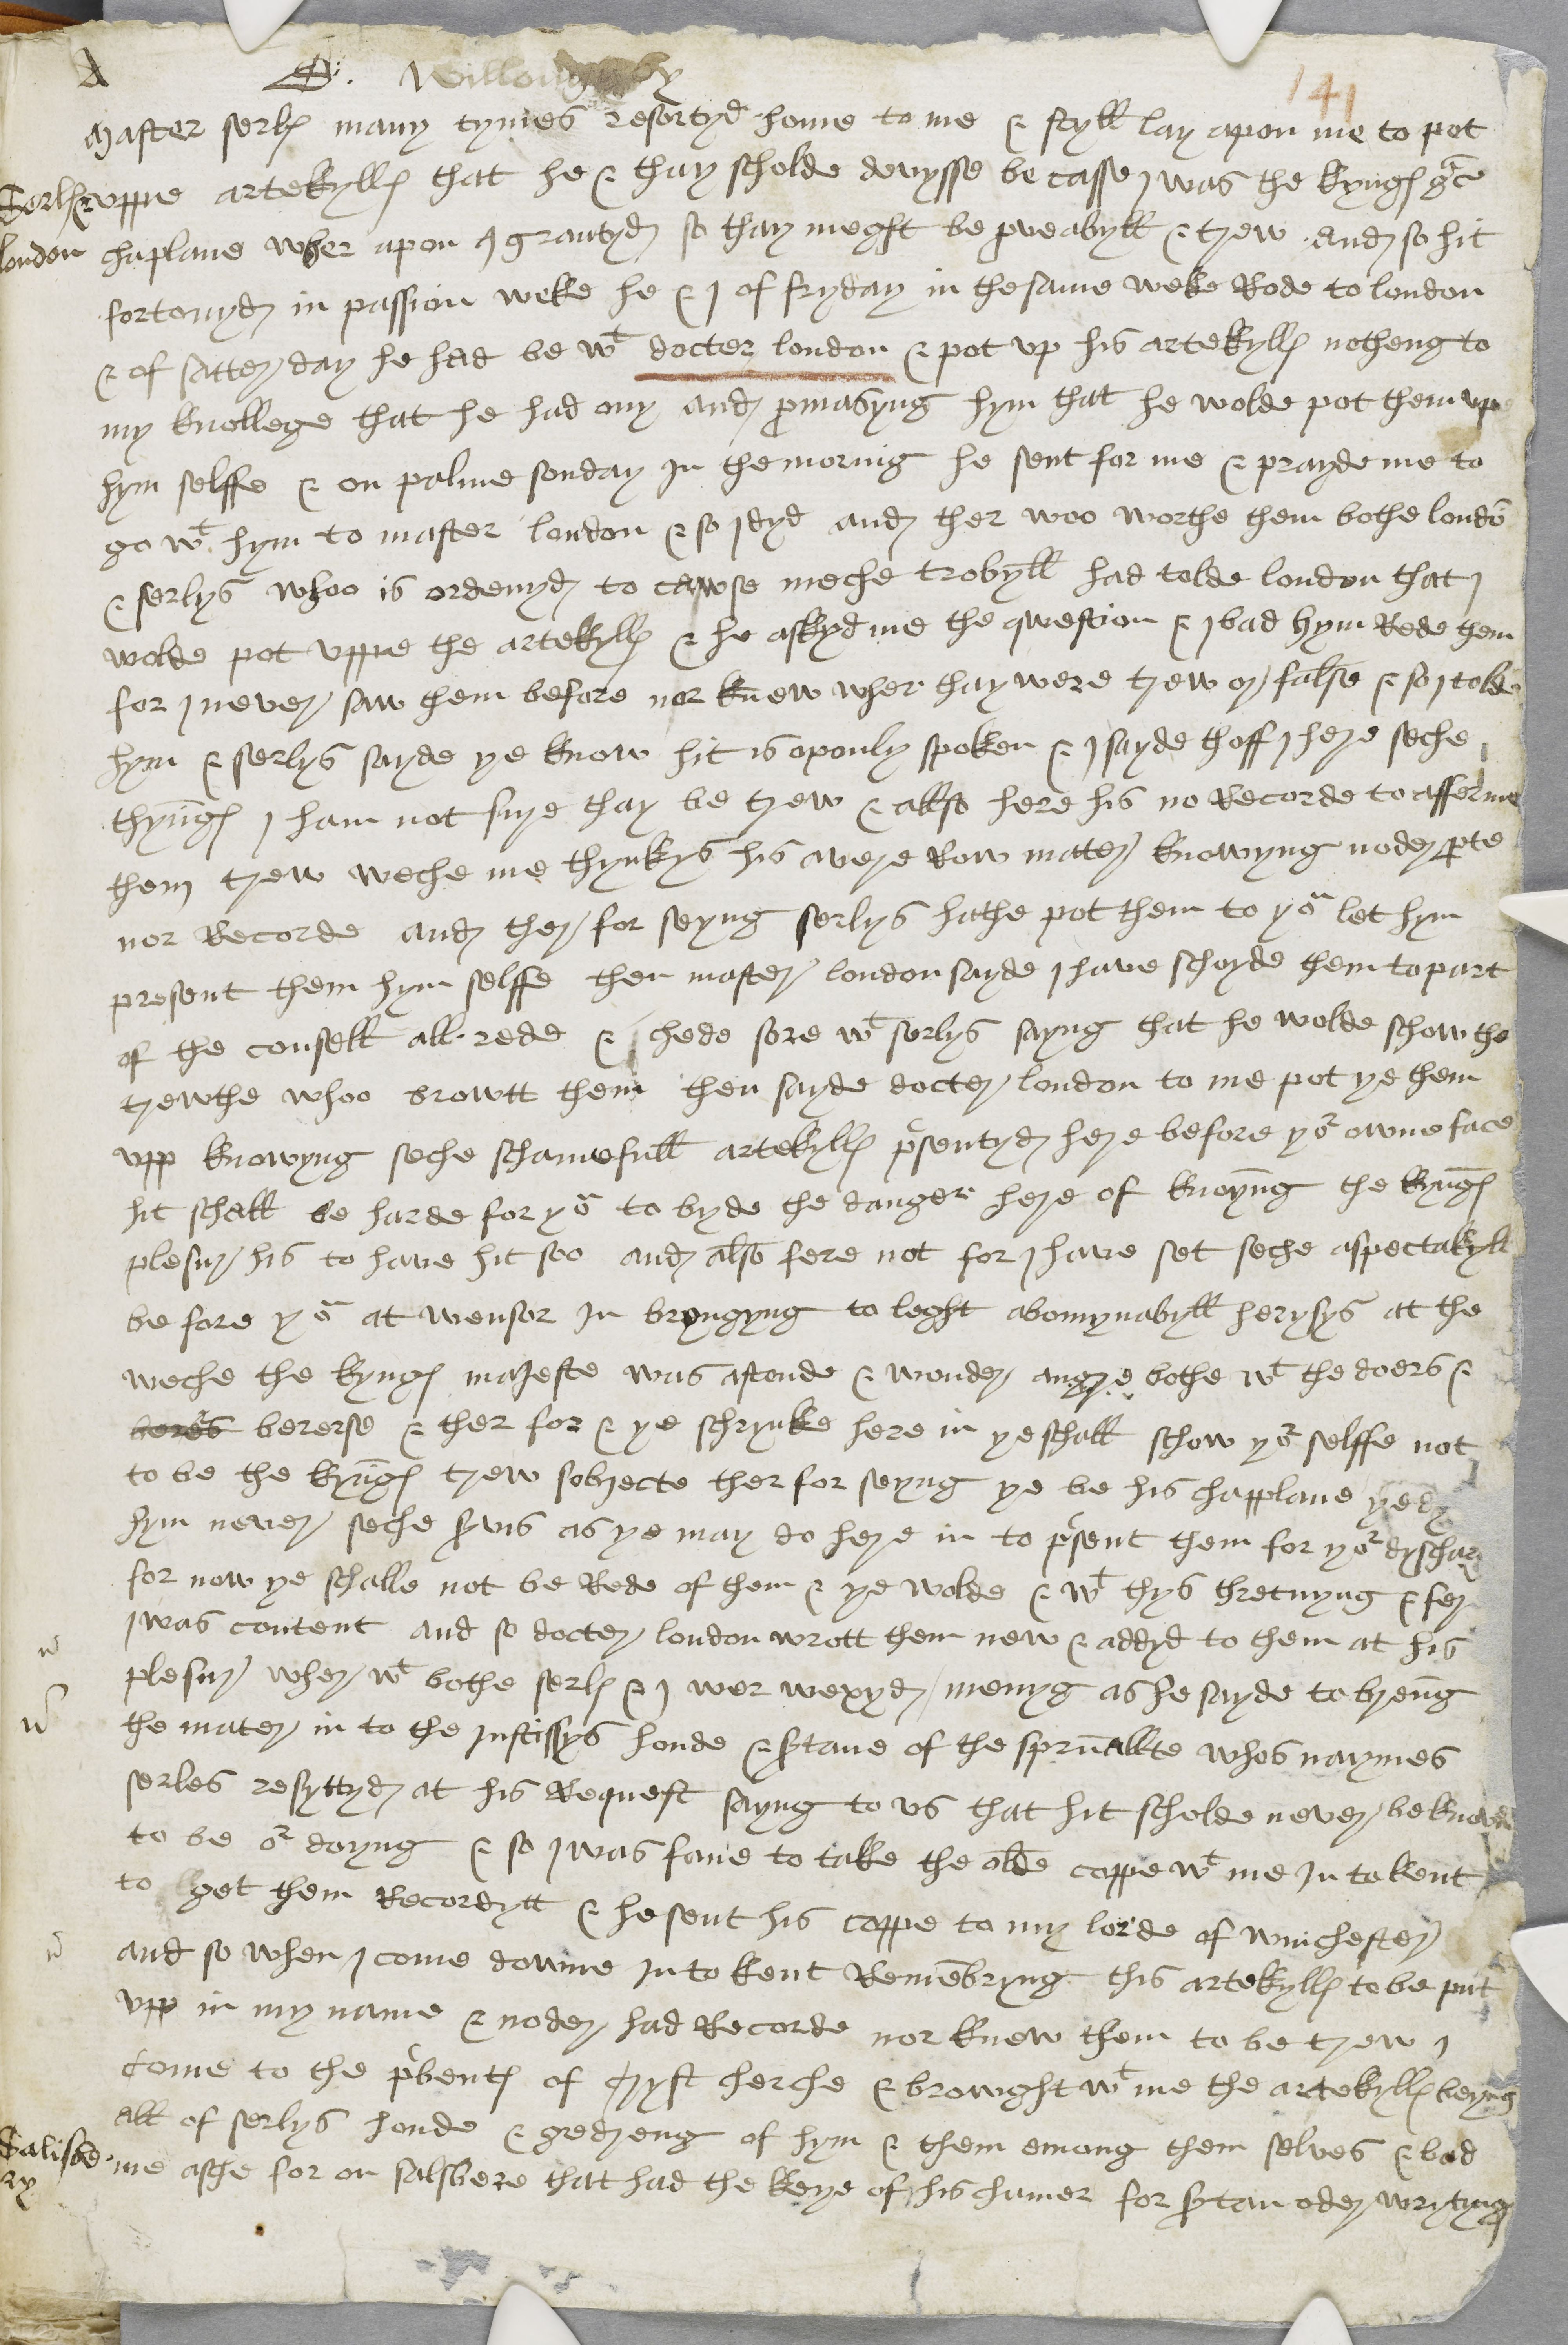 A D. Willoughby
141
Master serls many tymes resortyd home to me & styll lay apon me to pot
Serls &
london
uppe artekylls that he & thay scholde devysse be casse I was the kyngs grce
chaplane wher apon I grantyd so thay meght be proveabyll & trew And so hit
fortonyd in passion weke he & I of fryday in the same weke Rode to london
& of satterday he had be wt docter london & pot up his artekylls notheng to
my knollege that he had ony and promasyng hym that he wolde pot them vpe
hym selffe & on palme sonday In the mornig he sent for me & prayde me to
go wt hym to master london & so I dyd and ther woo worthe them bothe londo
& serlys whoo is ordenyd to cawse meche trobyll had tolde london that I
wolde pot vppe the artekylls & he askyd me the qwestion & I bad hym Rede them
for I never saw them before nor knew wher thay were trew or false & so I tolde
hym & serlys sayde ye know hit is oponly spoken & I sayde thoff I here seche
thyngs I ham not sure thay be trew & allso here his no Recorde to afferme
them trew weche me thynkys his a vere Row mater knowyng noder prte
nor Recorde and ther for seyng serlys hathe pot them to you let hym
present them hym selffe then master london sayde I have schoyde them to part
of the consell all rede & chede sore wt serlys sayng that he wolde schow the
trewthe whoo browtt them then sayde docter london to me pot ye them
vpp knowyng seche schamefull artekylls presentyd here before yor owne face
hit schall be harde for you to byde the danger here of knoyng the kyngs
plesur his to have hit soo and also fere not for I have set seche aspectakyll
be fore you at wensor In bryngyng to leght abomynabyll herysys at the
weche the kyngs majeste was astonde & wonder angre bothe wt the doers &
beres bererse & ther for & ye schrynke here in ye schall schow yor selffe not
to be the kyngs trew sobjecte ther for seyng ye be his chapplane ye dy
hym never seche servis as ye may do here in to present them for yor dyschar
for now ye schalle not be Rede of them & ye wolde & wt thys thretnyng & fer
I was content and so docter london wrott them new & addyd to them at his
plesur wher wt bothe serls & I wer wexyd menyg as he sayde to breng
the mater in to the Justissys honde & sertane of the sprituallte whos naymes
serles resyttyd at his Request sayng to vs that hit scholde never be knowne
to be or doyng & so I was fane to take the olde coppe wt me In to kent
to get them Recordytt & he sent his coppe to my lorde of winchester
and so when I come downe In to kent Remembryng this artekylls to be put
vpp in my name & noder had Recorde nor knew them to be trew I
come to the prebents of cryst cherche & browght wt me the artekylls beyng
all of serlys honde & gedreng of hym & them emong them selves & bad
Salisbe
ry
me asche for on salsbere that had the keye of his chamer for sertan oder wrytyng